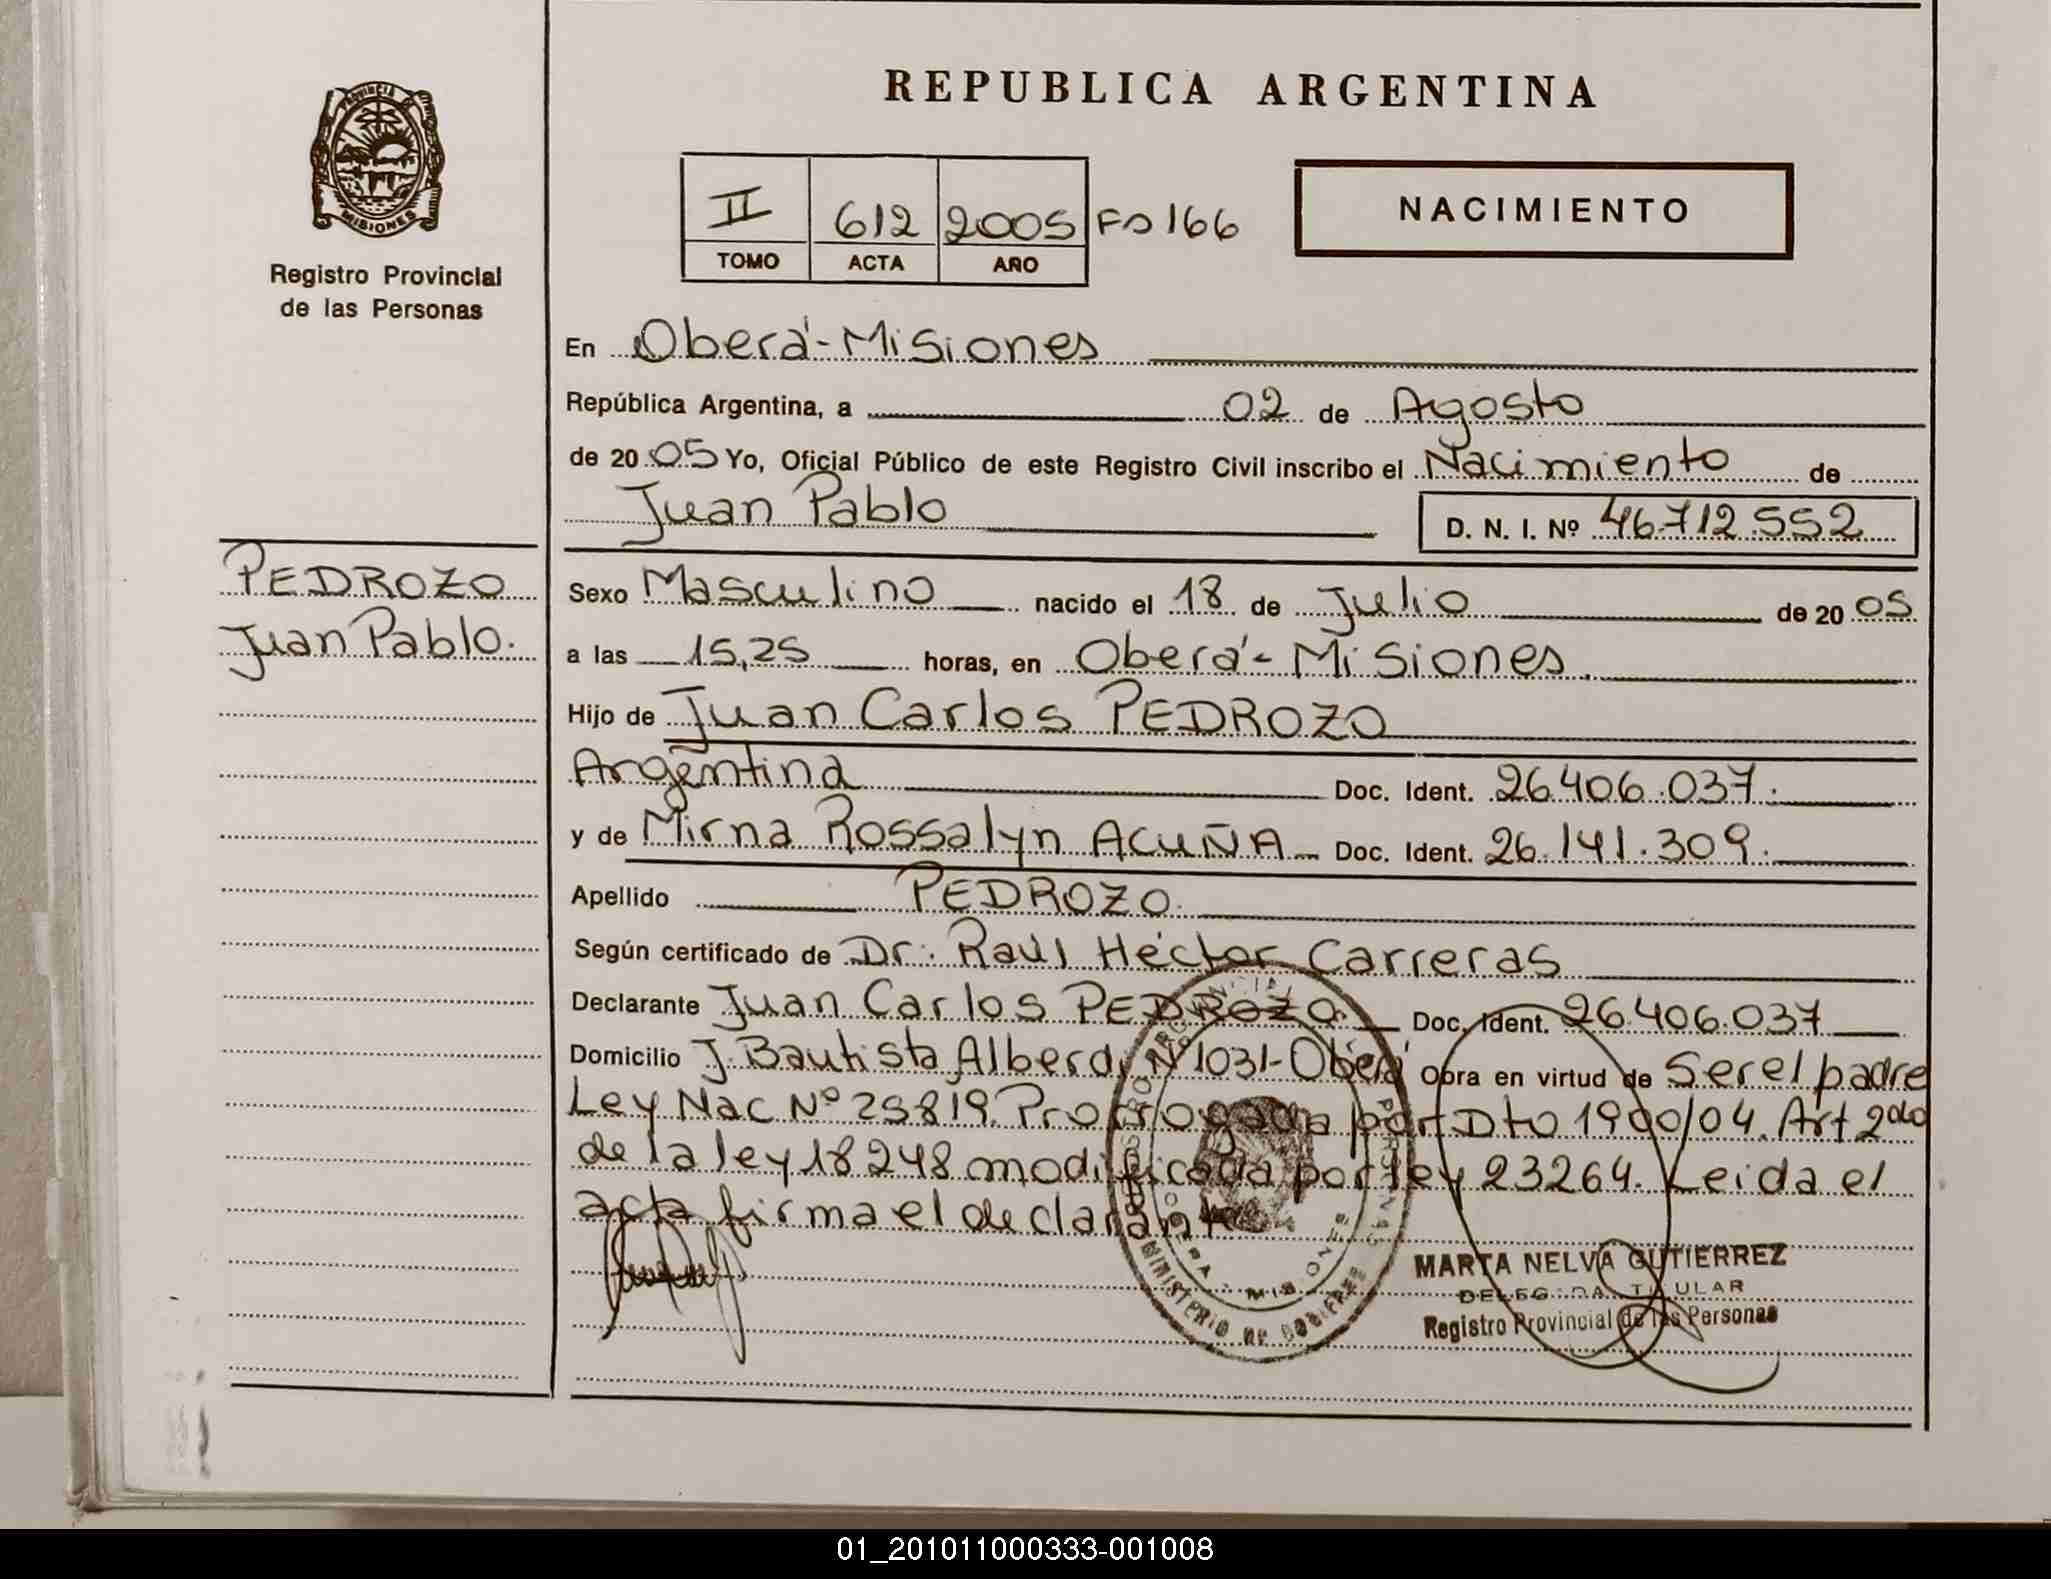 REPUBLICA ARGENTINA
PROVINCIA DE
MISIONES
Registro Provincial
de las Personas
II 612 2005 Fo 166
TOMO ACTA AÑO
NACIMIENTO
En Oberá-Misiones
República Argentina, a 02 de Agosto
de 2005 Yo, Oficial Público de este Registro Civil inscribo el Nacimiento de
Juan Pablo D. N. I. Nº 46.712.552
PEDROZO
Juan Pablo.
Sexo Masculino nacido el 18 de Julio de 2005
a las 15,25 horas, en Oberá-Misiones.
Hijo de Juan Carlos PEDROZO
Argentina Doc. Ident. 26.406.037.
y de Mirna Rossalyn ACUÑA Doc. Ident. 26.141.309.
Apellido PEDROZO.
Según certificado de Dr. Raúl Héctor Carreras
Declarante Juan Carlos PEDROZO. Doc. Ident. 26.406.037
Domicilio J. Bautista Alberdi Nº 1031-Oberá Obra en virtud de Ser el padre
Ley Nac Nº 25819. Prorrogada por Dto 1900/04. Art 2do
de la ley 18248 modificada por ley 23264. Leida el
acta, firma el declarante
MINISTERIO DE GOBIERNO
MISIONES
MARTA NELVA GUTIERREZ
DELEGADA TITULAR
Registro Provincial de las Personas
01_201011000333-001008